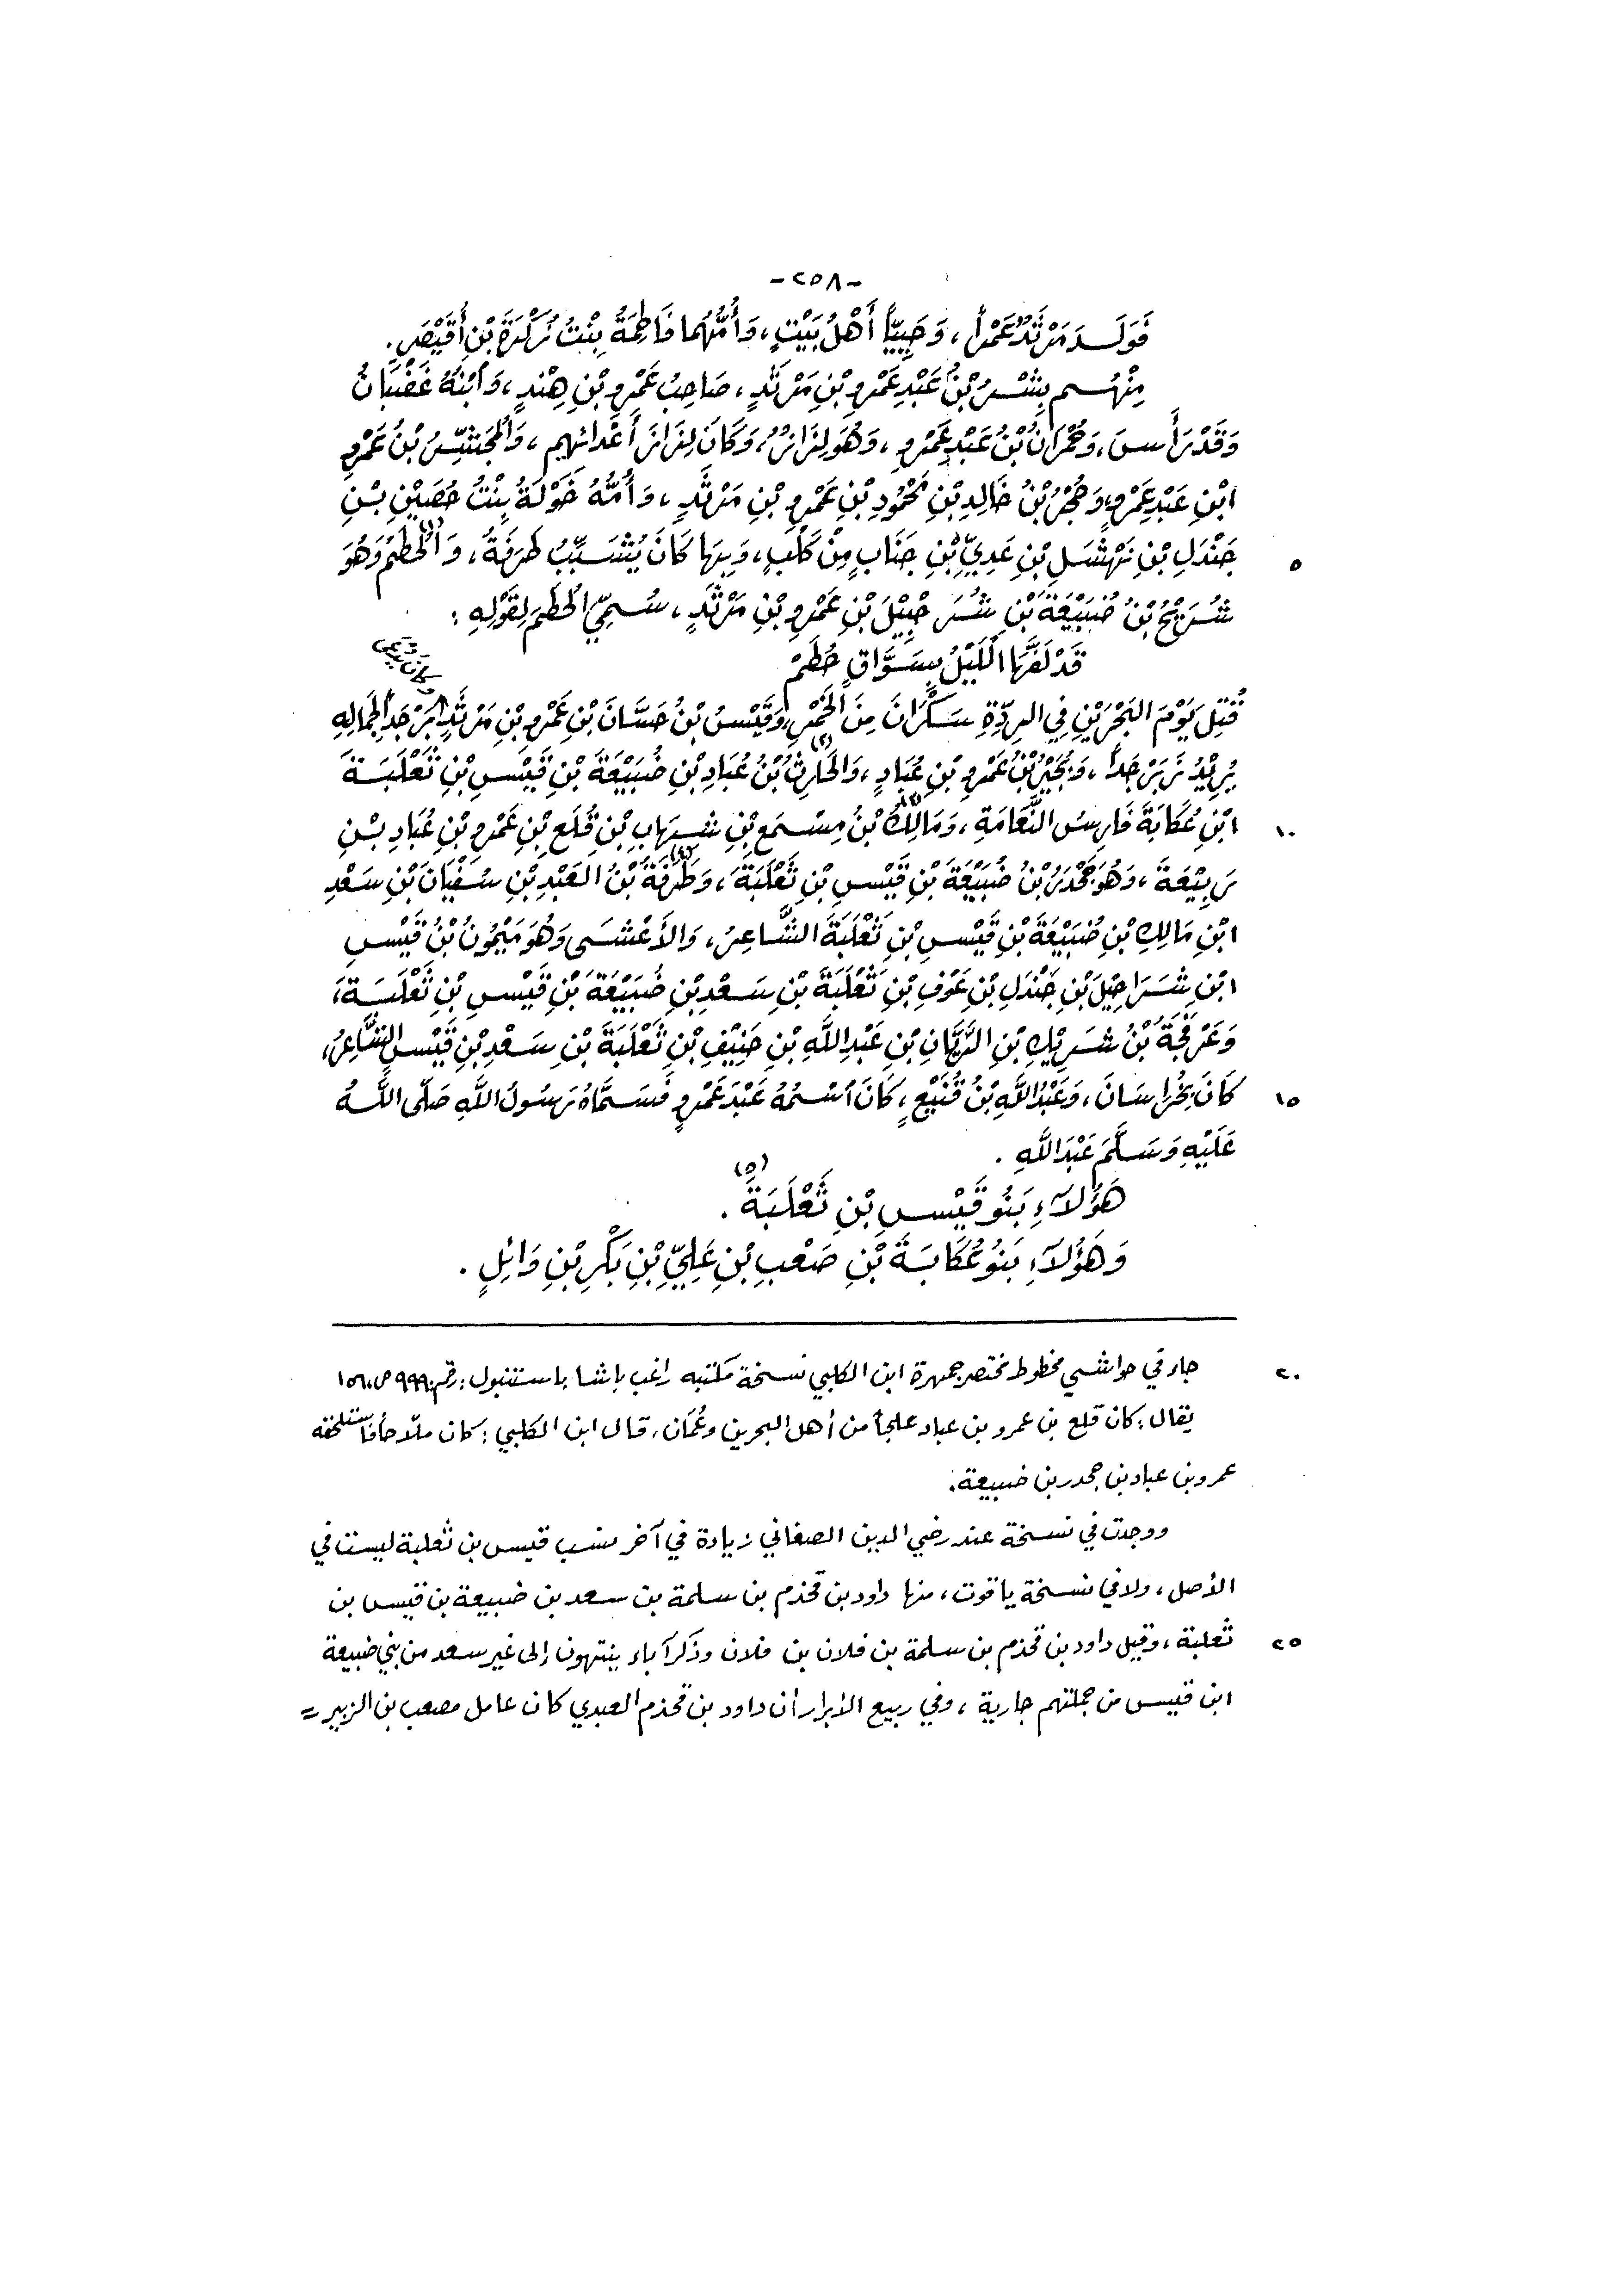 -٢٥٨-
فَوَلَدَ مَرْثَدٌ عَمْراً، وَحَبِيباً أَهْلُ بَيْتٍ، وَأُمُّهُمَا فَاطِمَةُ بِنْتُ بْنِ أُقَيْصِرِ.
مِنْهُم بِشْرُ بْنُ عَبْدِ عَمْرِو بْنِ مَرْثَدٍ، صَاحِبُ عَمْرِو بْنِ هِنْدٍ، وَٱبْنُهُ غَضْبَانُ
وَقَدْ رَأَسَ، وَحُمْرَانُ بْنُ عَبْدِ عَمْرٍو، وَهُوَ لِزَازٌ، وَكَانَ لِزَازَ أَعْدَائِهِم، وَٱلْمُجَشِّرُ بْنُ عَمْرِو
ابْنِ عَبْدِ عَمْرٍو، وَحُجْرُ بْنُ خَالِدِ بْنِ مَحْمُودِ بْنِ عَمْرِو بْنِ مَرْثَدٍ، وَأُمُّهُ خَوْلَةُ بِنْتُ حُصَيْنِ بْنِ
٥ جَنْدَلِ بْنِ نَهْشَلِ بْنِ عَدِيِّ بْنِ جَنَابٍ مِنْ كَلْبٍ، وَبِهَا كَانَ يُشَبِّبُ طَرَفَةُ، وَٱلْحُطَمُ (١) وَهُوَ
شُرَيْحُ بْنُ ضُبَيْعَةَ بْنِ شُرَحْبِيلَ بْنِ عَمْرِو بْنِ مَرْثَدٍ، سُمِّيَ الْحُطَمَ لِقَوْلِهِ :
قَدْ لَفَّهَا اللَّيْلُ بِسَوَّاقٍ حُطَمْ
قُتِلَ يَوْمَ الْبَحْرَيْنِ فِي الرِّدَّةِ سَكْرَانَ مِنَ الْخَمْرِ، وَقَيْسُ بْنُ حَسَّانَ بْنِ عَمْرِو بْنِ مَرْثَدٍ لِجَمَالِهِ
يُرِيْدُ زَبَرْجَداً، وَبُجَيْرُ بْنُ عَمْرِو بْنِ عُبَادٍ، وَالْحَارِثُ (٢) بْنُ عُبَادِ بْنِ ضُبَيْعَةَ بْنِ قَيْسِ بْنِ ثَعْلَبَةَ
١٠ ابْنِ عُكَابَةَ فَارِسُ النَّعَامَةِ، وَمَالِكُ (٣) بْنُ مِسْمَعِ بْنِ شِهَابِ بْنِ قَلَعِ بْنِ عَمْرِو بْنِ عُبَادِ بْنِ
رَبِيْعَةَ، وَهُوَ جَحْدَرُ بْنُ ضُبَيْعَةَ بْنِ قَيْسِ بْنِ ثَعْلَبَةَ، وَطَرَفَةُ (٤) بْنُ الْعَبْدِ بْنِ سُفْيَانَ بْنِ سَعْدِ
ابْنِ مَالِكِ بْنِ ضُبَيْعَةَ بْنِ قَيْسِ بْنِ ثَعْلَبَةَ الشَّاعِرُ، وَالأَعْشَى وَهُوَ مَيْمُونُ بْنُ قَيْسِ
ابْنِ شَرَاحِيلَ بْنِ جَنْدَلِ بْنِ عَوْفِ بْنِ ثَعْلَبَةَ بْنِ سَعْدِ بْنِ ضُبَيْعَةَ بْنِ قَيْسِ بْنِ ثَعْلَبَةَ،
وَعَرْفَجَةُ بْنُ شَرِيْكِ بْنِ الرَّيَّانِ بْنِ عَبْدِ اللَّهِ بْنِ حَنِيْفِ بْنِ ثَعْلَبَةَ بْنِ سَعْدِ بْنِ قَيْسٍ الشَّاعِرُ،
١٥ كَانَ بِخُرَاسَانَ، وَعَبْدُ اللَّهِ بْنُ قُنَيْعٍ، كَانَ ٱسْمُهُ عَبْدَ عَمْرٍو فَسَمَّاهُ رَسُولُ اللَّهِ صَلَّى اللَّهُ
عَلَيْهِ وَسَلَّمَ عَبْدَ اللَّهِ .
هَؤُلاَءِ بَنُو قَيْسِ بْنِ ثَعْلَبَةَ (٥) .
وَهَؤُلاَءِ بَنُو عُكَابَةَ بْنِ صَعْبِ بْنِ عَلِيِّ بْنِ بَكْرِ بْنِ وَائِلٍ .
٢٠ جاء في حواشي مخطوط مختصر جمهرة ابن الكلبي نسخة مكتبه راغب باشا باستنبول : رقم: ٩٩٩ ص: ١٥٦
يقال : كان قلع بن عمرو بن عباد علجاً من أهل البحرين وعُمَان، قال ابن الكلبي : كان ملّاحاً فاستلحقه
عمرو بن عباد بن جحدر بن ضبيعة.
ووجدت في نسخة عند رضي الدين الصغاني زيادة في آخر نسب قيس بن ثعلبة ليست في
الأصل، ولا في نسخة ياقوت، منها داود بن قحذم بن سلمة بن سعد بن ضبيعة بن قيس بن
٢٥ ثعلبة، وقيل داود بن قحذم بن سلمة بن فلان بن فلان وذكر آباء ينتهون إلى غير سعد من بني ضبيعة
ابن قيس من جملتهم جارية ، وفي ربيع الأبرار أن داود بن قحذم العبدي كان عامل مصعب بن الزبير =